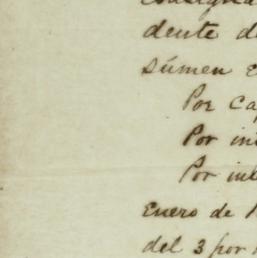 consigna
dente d
súmen e
Por Ca
Por in
Por in
Enero de
del 3 por